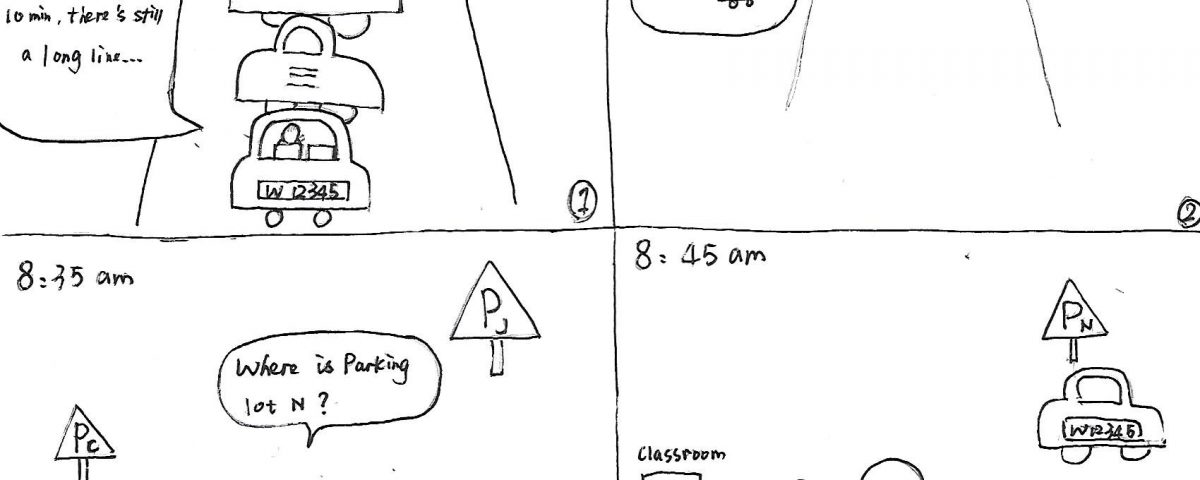 10 min, there's still
a long line...
W 12345
1
2
8:35 am
PJ
Where is Parking
lot N?
PC
8:45 am
PN
W12345
Classroom